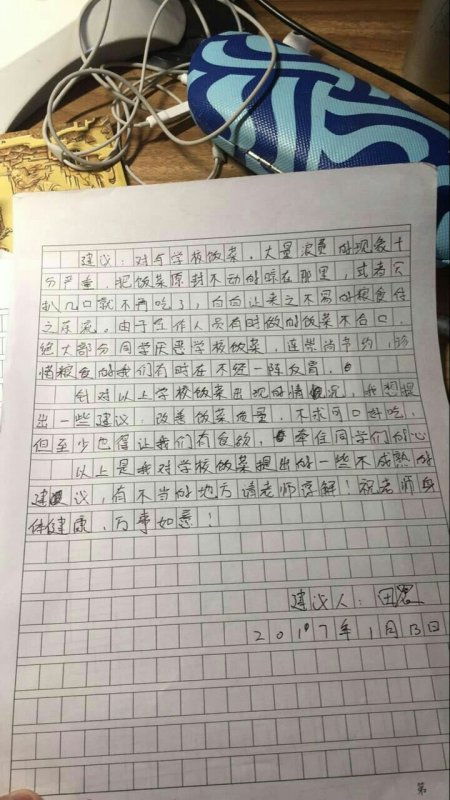 建议：对与学校饭菜，大量浪费的现象十
分严重，把饭菜原封不动的晾在那里，或者只
扒几口就不再吃了，白白让来之不易的粮食付
之东流。由于工作人员有时做的饭菜不合口，
绝大部分同学厌恶学校饭菜，连崇尚节约，珍
惜粮食的我们有时在不经一阵反胃。
针对以上学校饭菜出现的情况，我想提
出一些建议：改善饭菜质量，不求可口好吃，
但至少也得让我们有食欲，牵住同学们的心
以上是我对学校饭菜提出的一些不成熟的
建议，有不当的地方请老师谅解！祝老师身
体健康，万事如意！
建议人：田
2017年1月13日
第